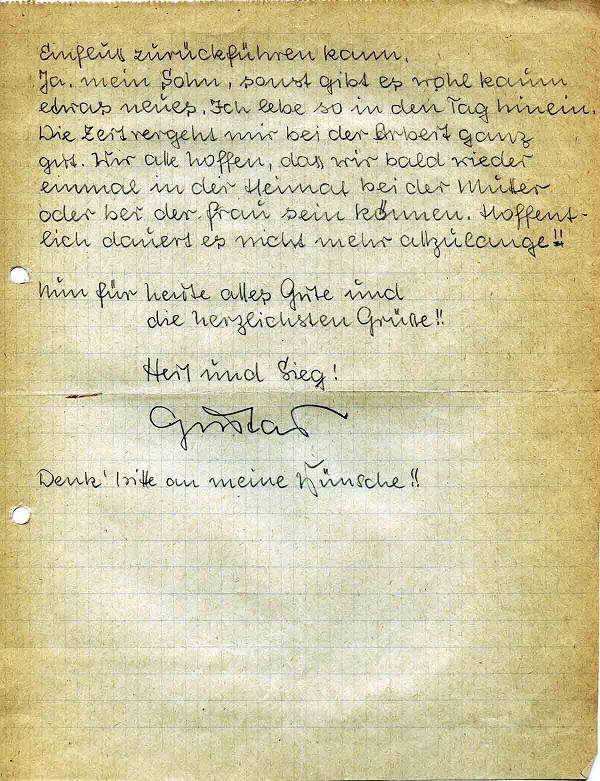 Einfluß zurückführen kann.
Ja, mein Sohn, sonst gibt es wohl kaum
etwas neues. Ich lebe so in den Tag hinein.
Die Zeit vergeht mir bei der Arbeit ganz
gut. Wir alle hoffen, dass wir bald wieder
einmal in der Heimat bei der Mutter
oder bei der Frau sein können. Hoffent-
lich dauert es nicht mehr allzulange!!
Nun für heute alles Gute und
die herzlichsten Grüße!!
Heil und Sieg!
Gustav
Denk' bitte an meine Wünsche!!